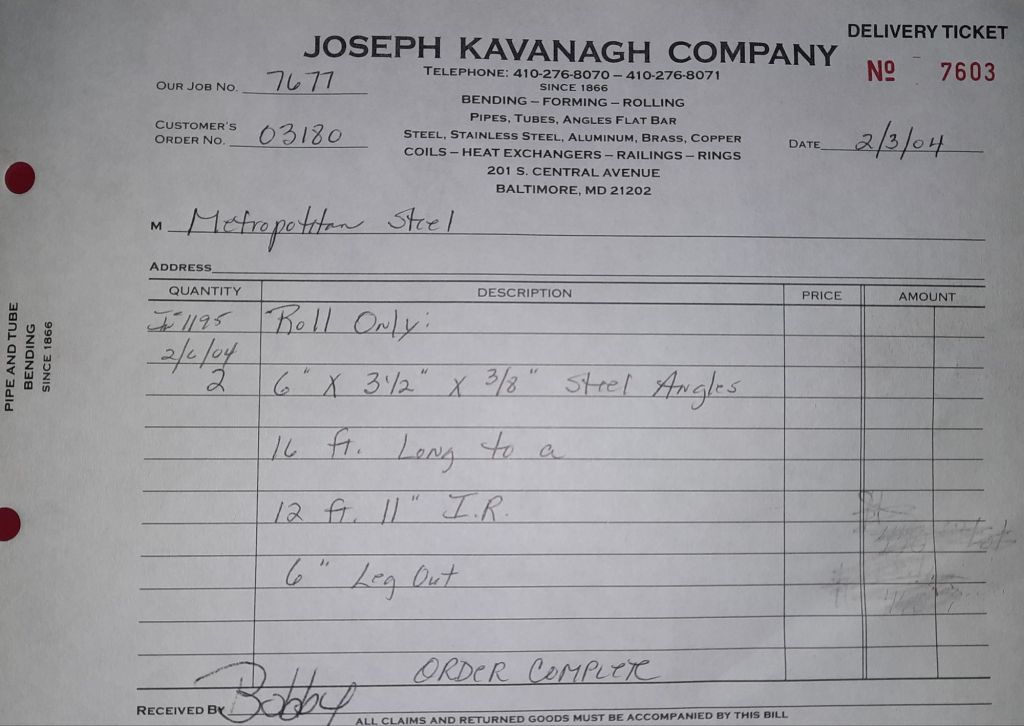 DELIVERY TICKET
JOSEPH KAVANAGH COMPANY
Nº 7603
TELEPHONE: 410-276-8070 – 410-276-8071
SINCE 1866
BENDING – FORMING – ROLLING
PIPES, TUBES, ANGLES FLAT BAR
STEEL, STAINLESS STEEL, ALUMINUM, BRASS, COPPER
COILS – HEAT EXCHANGERS – RAILINGS – RINGS
201 S. CENTRAL AVENUE
BALTIMORE, MD 21202
OUR JOB NO. 7677
CUSTOMER'S
ORDER NO. 03180
DATE 2/3/04
M Metropolitan Steel
ADDRESS
QUANTITY DESCRIPTION PRICE AMOUNT
1195 Roll Only:
2/6/04
2 6" X 3 1/2" X 3/8" Steel Angles
16 ft. Long to a
12 ft. 11" I.R.
6" Leg Out
ORDER COMPLETE
RECEIVED BY Bobby
ALL CLAIMS AND RETURNED GOODS MUST BE ACCOMPANIED BY THIS BILL
PIPE AND TUBE
BENDING
SINCE 1866